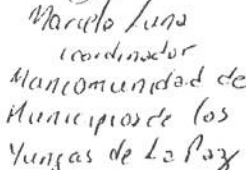 Marcelo Luna
coordinador
Mancomunidad de
Municipios de los
Yungas de La Paz